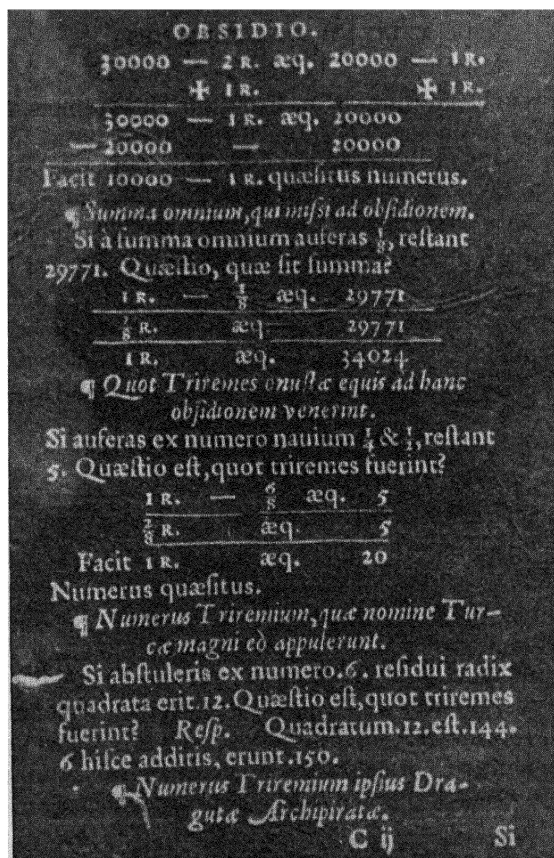 OBSIDIO.
30000 — 2 R. æq. 20000 — 1 R.
✠ 1 R. ✠ 1 R.
30000 — 1 R. æq. 20000
— 20000 — 20000
Facit 10000 — 1 R. quæſitus numerus.
¶ Summa omnium, qui miſsi ad obſidionem.
Si à ſumma omnium auferas 1/8, reſtant
29771. Quæſtio, quæ ſit ſumma?
1 R. — 1/8 æq. 29771
7/8 R. æq. 29771
1 R. æq. 34024
¶ Quot Triremes onuſtæ equis ad hanc
obſidionem venerint.
Si auferas ex numero nauium 1/4 & 1/2, reſtant
5. Quæſtio eſt, quot triremes fuerint?
1 R. — 6/8 æq. 5
2/8 R. æq. 5
Facit 1 R. æq. 20
Numerus quæſitus.
¶ Numerus Triremium, quæ nomine Tur-
cæ magni eò appulerunt.
Si abſtuleris ex numero .6. reſidui radix
quadrata erit .12. Quæſtio eſt, quot triremes
fuerint? Reſp. Quadratum .12. eſt .144.
6 hiſce additis, erunt .150.
¶ Numerus Triremium ipſius Dra-
gutæ Archipiratæ.
C ij Si